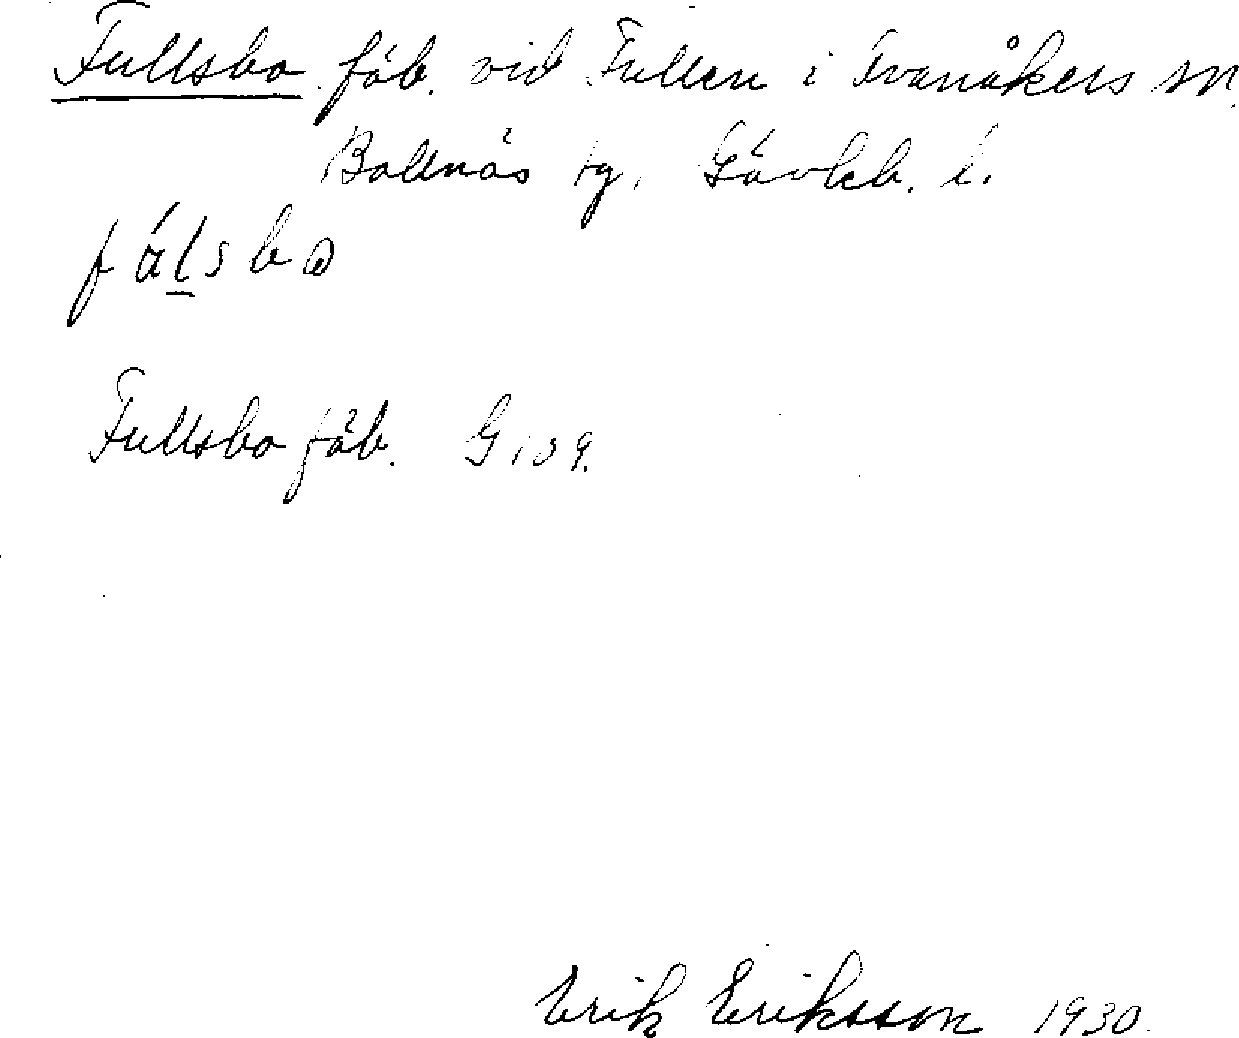 Fullsbo fäb. vid Fullen i Svanåkers sn.
Bollnäs tg. Gävleb. l.
fálsbo
Fullsbo fäb. G 109.
Erik Eriksson 1930.